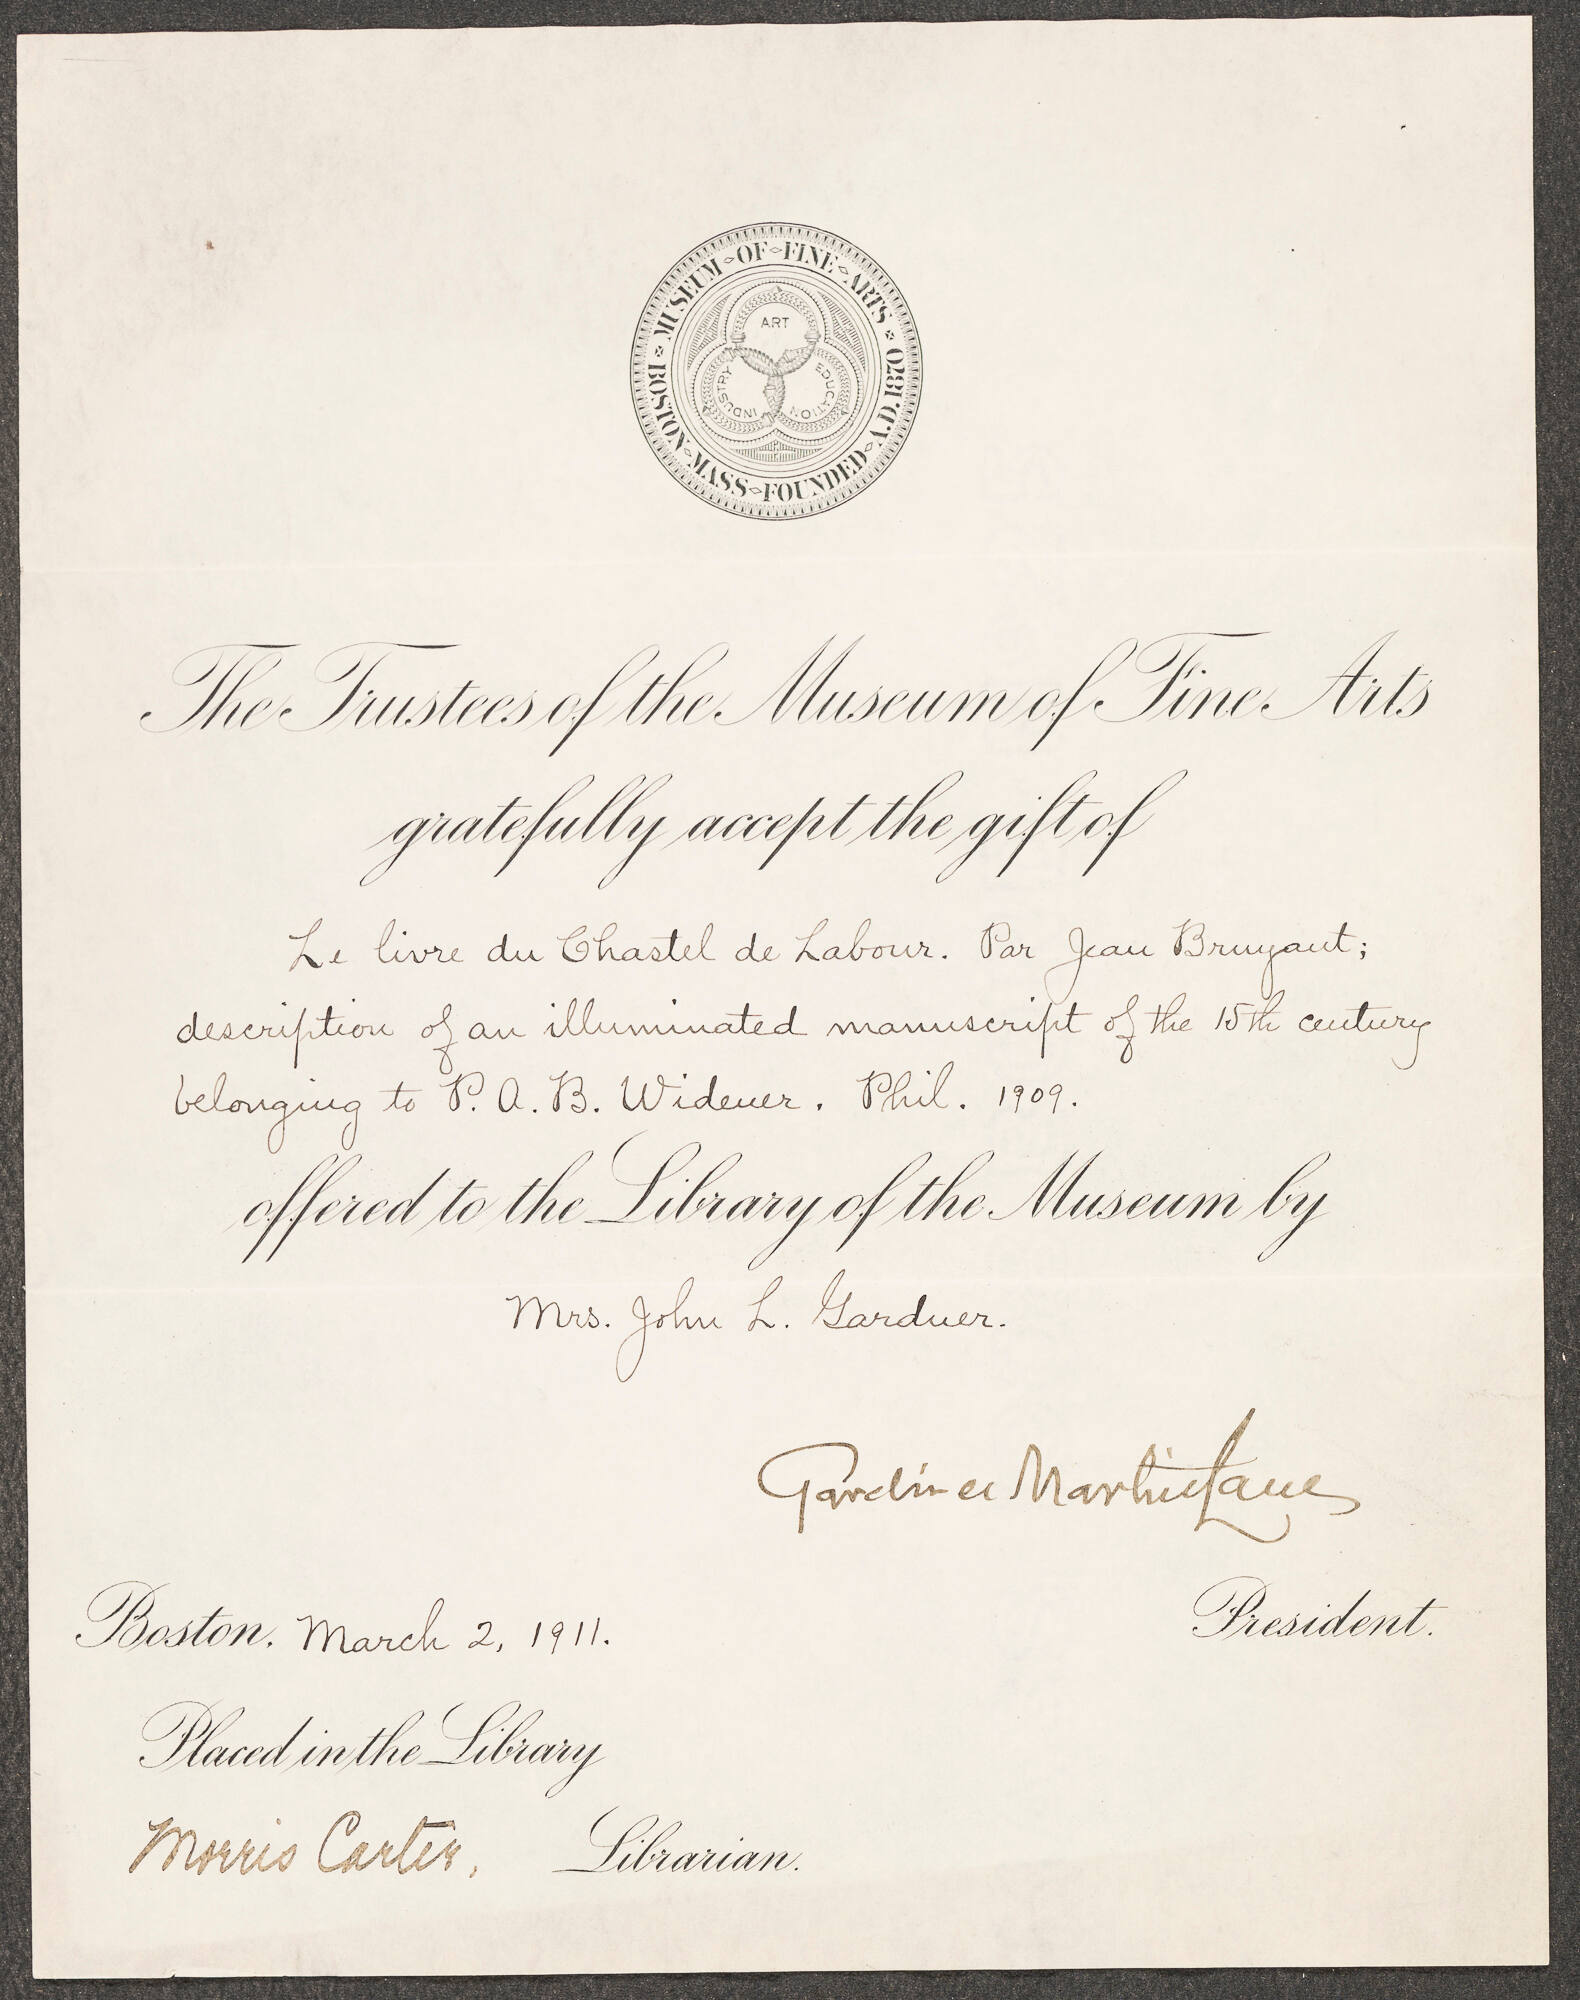 MUSEUM OF FINE ARTS
BOSTON MASS FOUNDED A.D. 1870
ART
INDUSTRY
EDUCATION
The Trustees of the Museum of Fine Arts
gratefully accept the gift of
Le livre du Chastel de Labour. Par Jean Bruyant;
description of an illuminated manuscript of the 15th century
belonging to P. A. B. Widener. Phil. 1909.
offered to the Library of the Museum by
Mrs. John L. Gardner.
Gardiner Martin Lane
Boston, March 2, 1911.
President.
Placed in the Library
Morris Carter, Librarian.